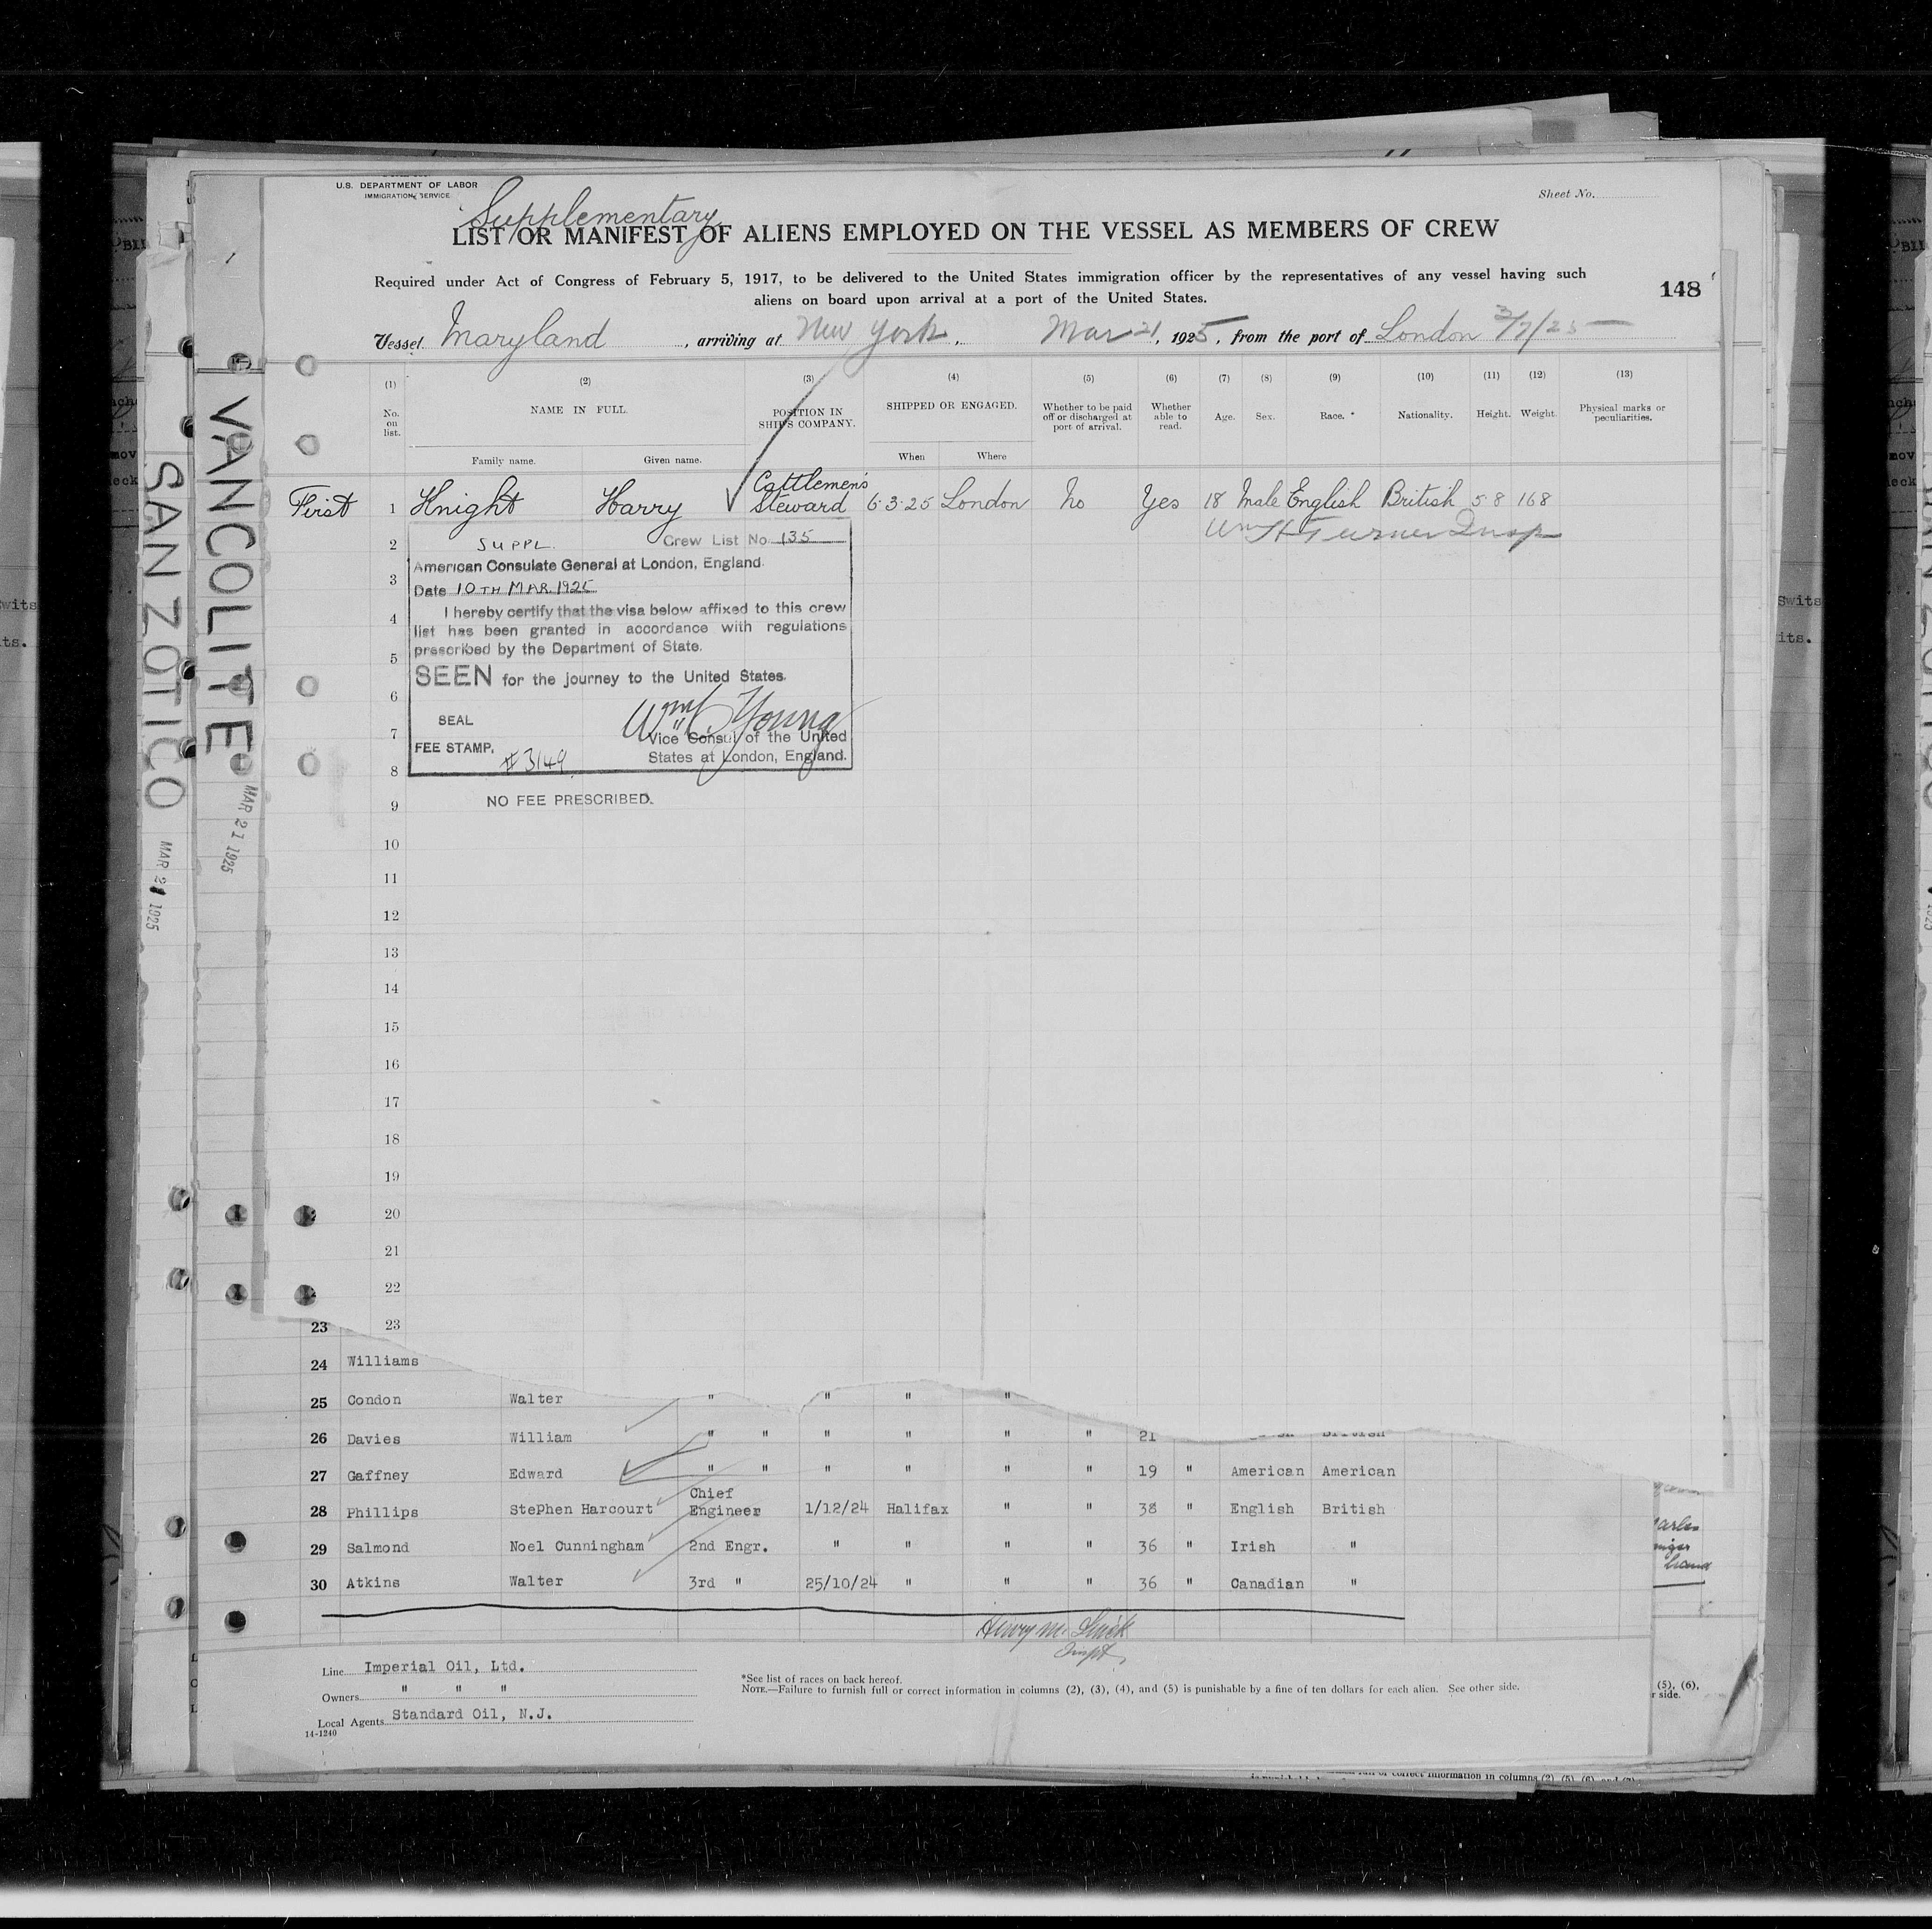 U.S. DEPARTMENT OF LABOR
IMMIGRATION SERVICE
Sheet No.
Supplementary
LIST OR MANIFEST OF ALIENS EMPLOYED ON THE VESSEL AS MEMBERS OF CREW
Required under Act of Congress of February 5, 1917, to be delivered to the United States immigration officer by the representatives of any vessel having such
aliens on board upon arrival at a port of the United States.
148
Vessel Maryland, arriving at New York, Mar 21, 1925, from the port of London 3/7/25
(1) (2) (3) (4) (5) (6) (7) (8) (9) (10) (11) (12) (13)
No. on list. NAME IN FULL. POSITION IN SHIP'S COMPANY. SHIPPED OR ENGAGED. Whether to be paid off or discharged at port of arrival. Whether able to read. Age. Sex. Race. * Nationality. Height. Weight. Physical marks or peculiarities.
Family name. Given name. When Where
First 1 Knight Harry Cattlemen's Steward 6·3·25 London No Yes 18 Male English British 5 8 168
Wm H Turner Insp
2
3
4
5
6
7
8
SUPPL. Crew List No. 135
American Consulate General at London, England.
Date 10TH MAR. 1925
I hereby certify that the visa below affixed to this crew
list has been granted in accordance with regulations
prescribed by the Department of State.
SEEN for the journey to the United States.
SEAL
Young
FEE STAMP.
Vice Consul of the United
States at London, England.
# 3149
9 NO FEE PRESCRIBED.
10
11
12
13
14
15
16
17
18
19
20
21
22
23 23
24 Williams
25 Condon Walter " " " "
26 Davies William " " " " " " 21 British
27 Gaffney Edward " " " " " " 19 " American American
28 Phillips StePhen Harcourt Chief Engineer 1/12/24 Halifax " " 38 " English British
29 Salmond Noel Cunningham 2nd Engr. " " " " 36 " Irish "
30 Atkins Walter 3rd " 25/10/24 " " " 36 " Canadian "
Line Imperial Oil, Ltd.
Owners " " "
Local Agents Standard Oil, N.J.
14-1240
*See list of races on back hereof.
NOTE.—Failure to furnish full or correct information in columns (2), (3), (4), and (5) is punishable by a fine of ten dollars for each alien. See other side.
(5), (6),
r side.
VANCOLITE
MAR 21 1925
SAN ZOTICO
MAR 21 1925